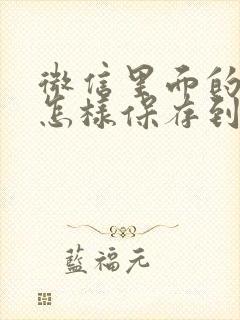 微信里面的
怎样保存到
藍福元